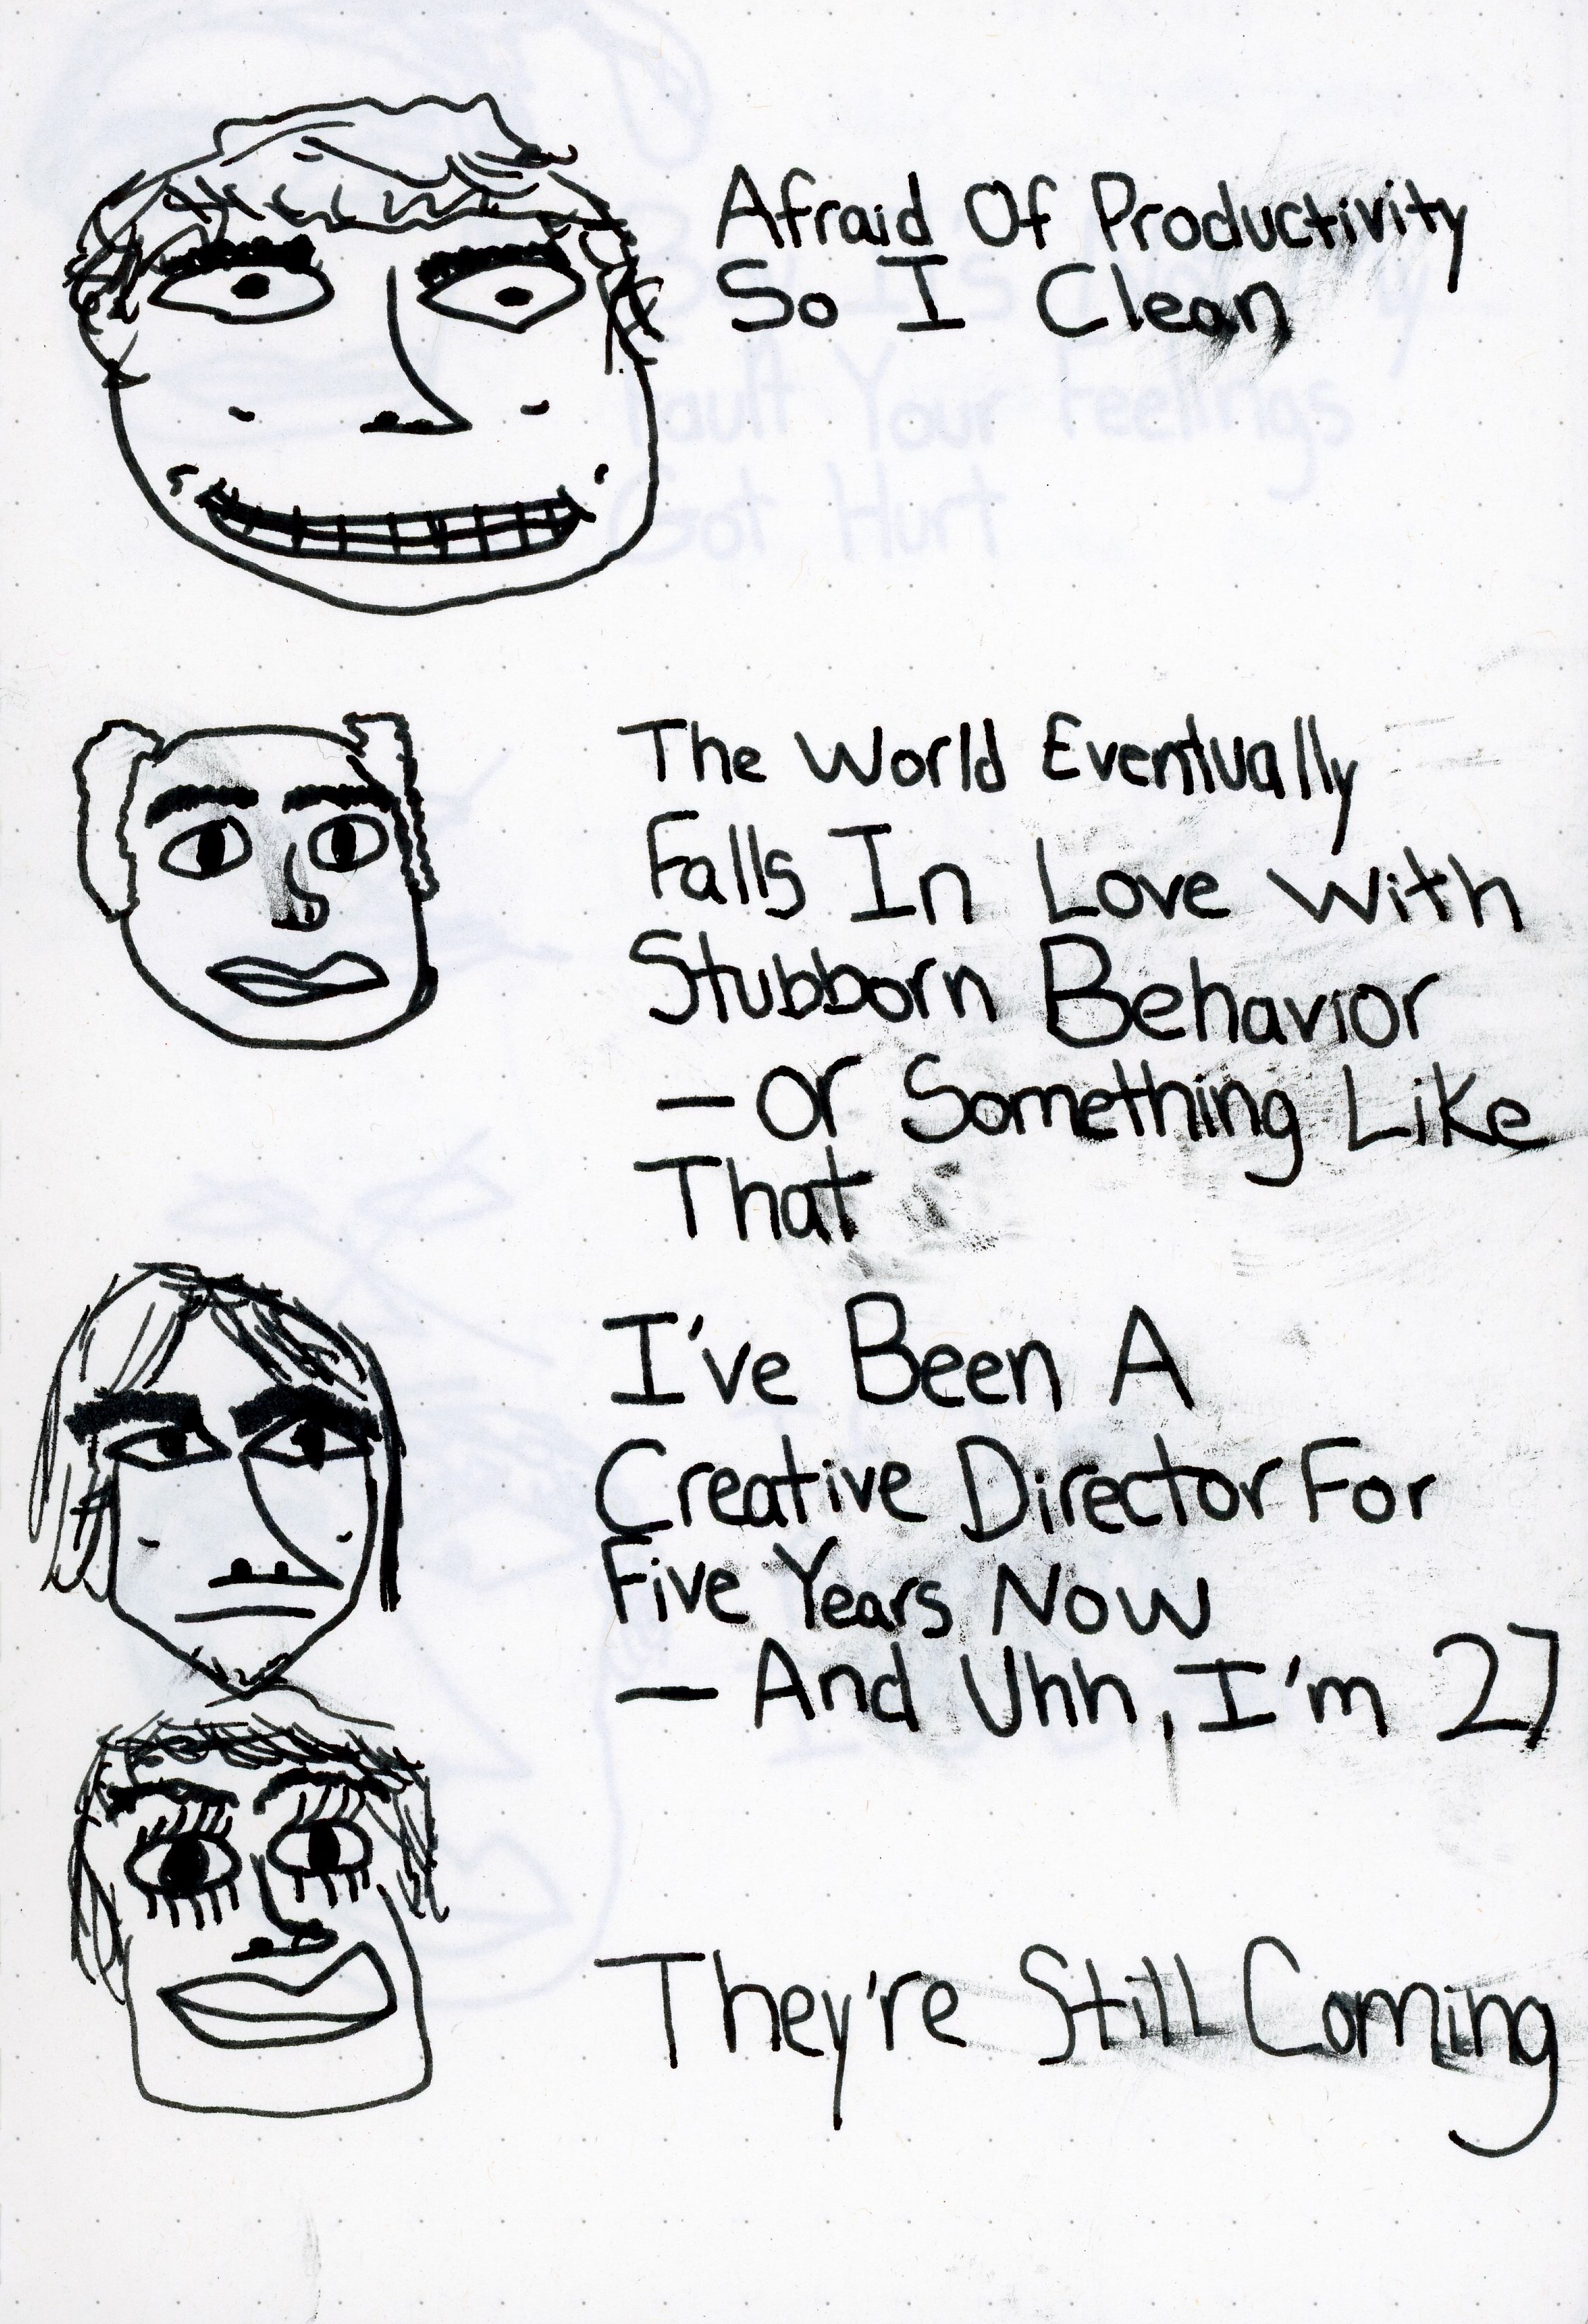 Afraid Of Productivity
So I Clean
Fault Your Feelings
Got Hurt
The World Eventually
Falls In Love With
Stubborn Behavior
— Or Something Like
That
I've Been A
Creative Director For
Five Years Now
— And Uhh, I'm 27
They're Still Coming